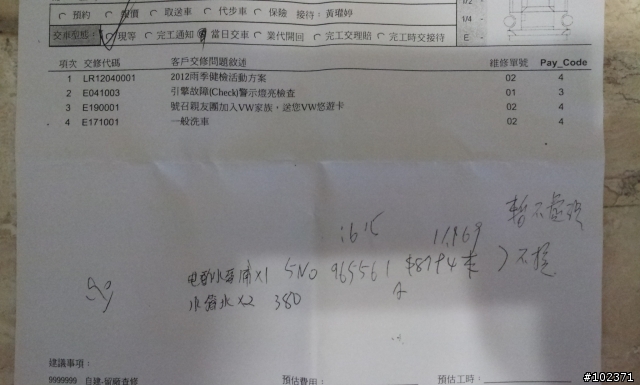 預約 報價 取送車 代步車 保險 接待：黃瓊婷
交車型態： 現等 完工通知 當日交車 業代開回 完工交理賠 完工時交接待
1/4
E
項次 交修代碼 客戶交修問題敘述 維修單號 Pay_Code
1 LR12040001 2012雨季健檢活動方案 02 4
2 E041003 引擎故障(Check)警示燈亮檢查 01 3
3 E190001 號召親友團加入VW家族，送您VW悠遊卡 02 4
4 E171001 一般洗車 02 4
暫不處理
1615
x1 5N0 965561 不換
水箱水x2 380
建議事項：
9999999 自建-留廠查修 預估費用： 預估工時：
#102371